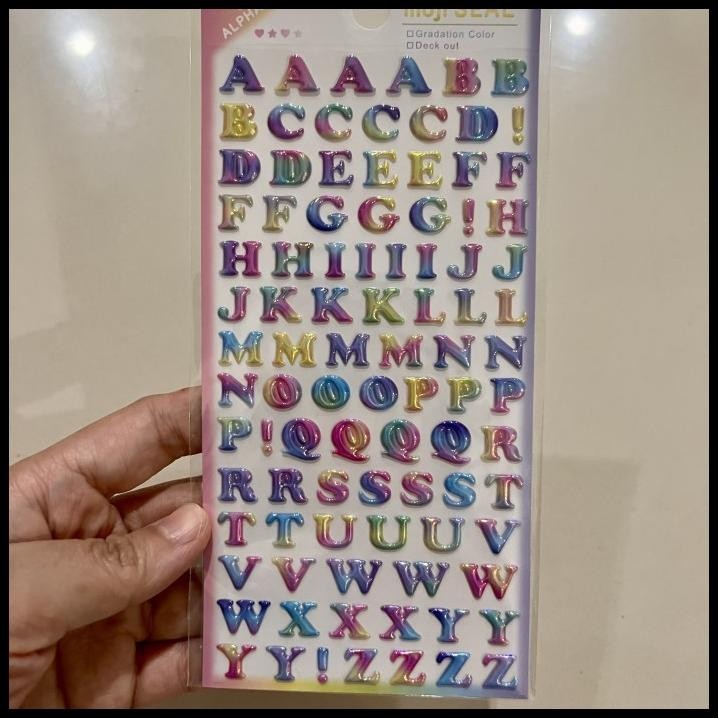 ALPHA
moji SEAL
Gradation Color
Deck out
A A A A B B
B C C C C D !
D D E E E F F
F F G G G ! H
H H I I I I J J
J K K K L L L
M M M M N N
N O O O P P P
P ! Q Q Q Q R
R R S S S S T
T T U U U V
V V W W W
W X X X Y Y
Y Y ! Z Z Z Z